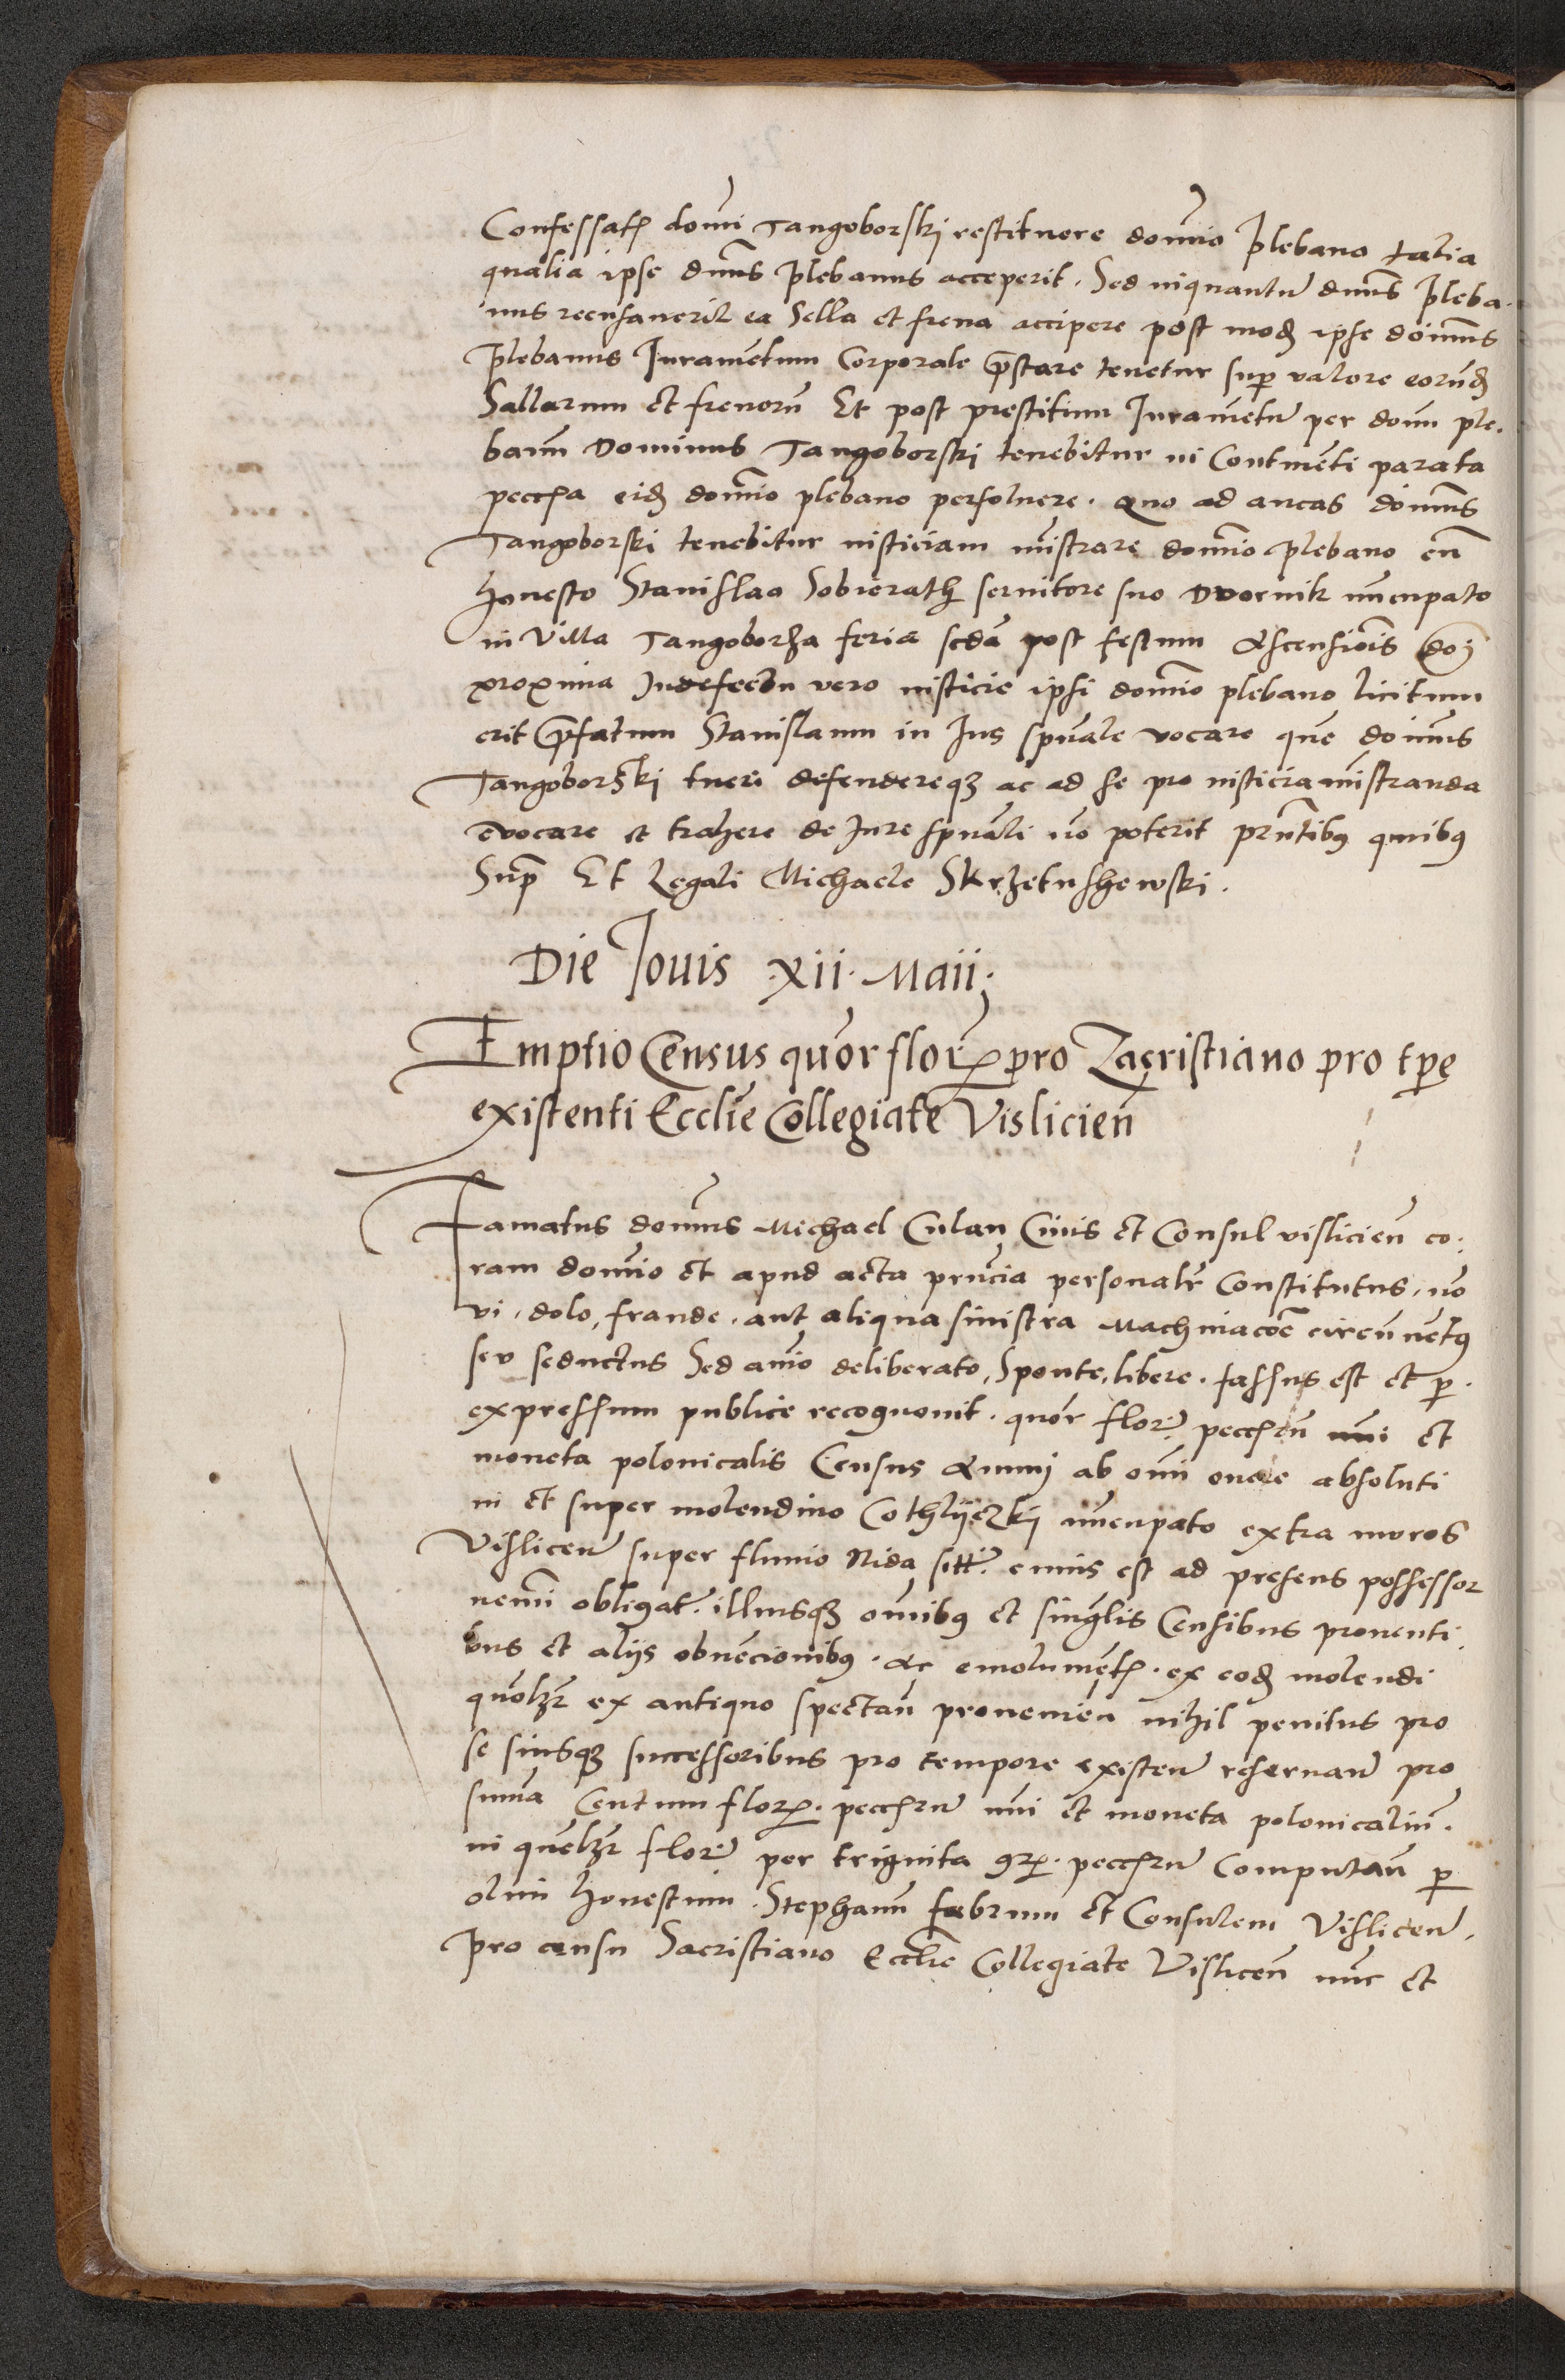 Confessatꝭ domi Tangoborskj restituere domino plebano talia
qualia ipse dnūs plebanus acceperit. Sed inquantū dnūs pleba-
nus recusaueril ea Sella et frena accipere post moꝺ ipse doīnūs
plebanus Iuramētum Corporale p̄stare tenetur sup valore eorūꝺ
Sallarum et frenorū Et post prestitum Iuramētū per domū ple-
banū Dominus Tangoborski tenebitur in Continēti parata
peccīa eiꝺ domino plebano persoluere. Quo ad aucas doīnūs
Tangoborski tenebitur iusticiam mīstrare domino plebano cū
honesto Stanislao Sobierath seruitore suo Dwornik nūcupato
in Villa Tangoborza feria scda post festum Ascensiōis doj
proxima In defectu vero iusticie ipsi domino plebano licitum
erit p̄fatum Stanislaum in Ius spuāle vocare quē doīnūs
Tangoborski tueri defendereqꝫ ac ad se pro iusticia mīstranda
euocare et trahere de Iure spuāli nō poterit prn̄tibꝯ quibꝯ
Sup̄ Et Legali Michaele Skrzetusshewski.
Die Iouis .xii. Maii;
Emptio Census quōr florꝝ pro Zacristiano pro tp̄e
existenti Ecclīe Collegiate Vislicien̄
Famatus domūs Michael Culan Ciuis et Consul vislicien̄ co-
ram domino et apud acta prn̄cia personalr̄ Constitutus, nō
vi, dolo, fraude, aut aliqua sinistra Machinacōe circūuētꝯ
seu seductus Sed aīmo deliberato, Sponte, libere. fassus est et p.
expressum publice recognouit. quōr florē. pecchrū nūi et
moneta polonicalis Census Annuj ab omī onere absoluti
in et super molendino Cothlijeczkj nūcupato extra muros
Vislicen̄ super fluuio Nida sitt̄. cuius est ad presens possessor
nemī obligat̄. illiusqꝫ omībꝯ et singulis Censibus prouenti
bus et alijs obuēcionibꝯ. ac emolumētꝭ. ex eoꝺ molendi
quōlzr ex antiquo spectan̄ prouenien̄ nihil penitus pro
se suisqꝫ successoribus pro tempore existen̄ reseruan̄ pro
summa Centum florꝝ. pecchrū nūi et moneta polonicaliū.
in quēlzr florē per triginta grꝝ. pecchrū Computan̄ p
olim honestum. Stephanū fabrum et Consulem Vislicen̄.
pro censu Sacristiano Ecclīe Collegiate Vislicen̄ nūc et